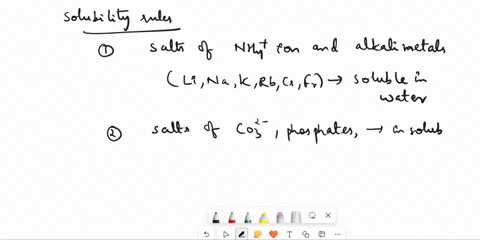 solubility rules
① salts of NH4+ ion and alkali metals
(Li, Na, K, Rb, Cs, Fr) → soluble in
water
② salts of CO3^2-, phosphates, → in solub